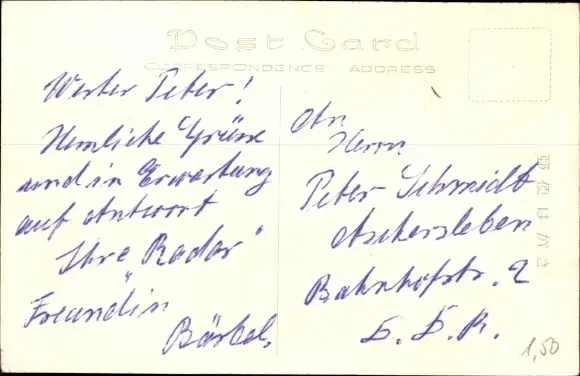 Post Card
CORRESPONDENCE ADDRESS
Werter Peter!
Hemliche Grüsse
und in Erwartung
auf Antwort
Ihre "Radar"
Freundin
Bärbel.
An
Herrn
Peter Schmidt
Aschersleben
Bahnhofstr. 2
D.D.R.
1,50